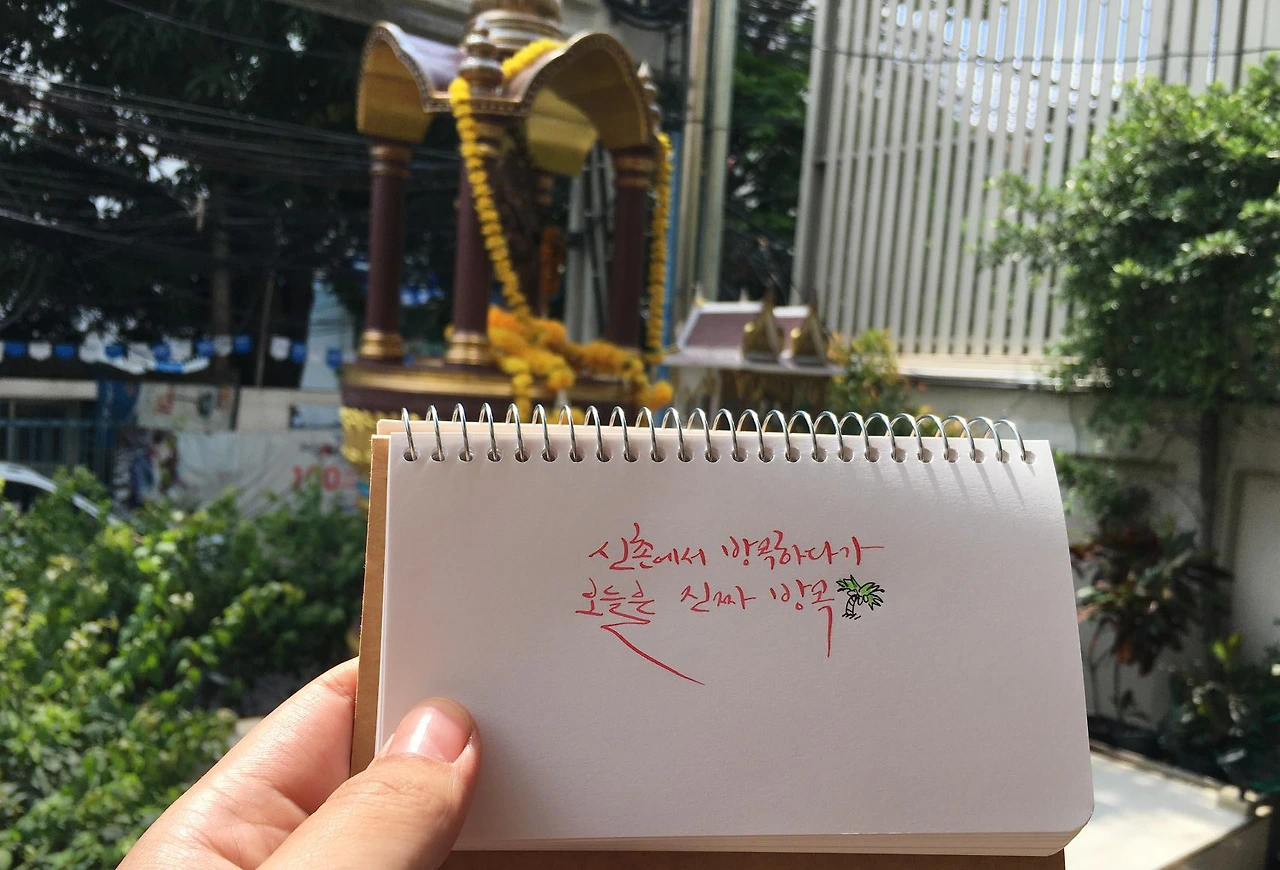 신촌에서 방콕하다가
오늘은 진짜 방콕